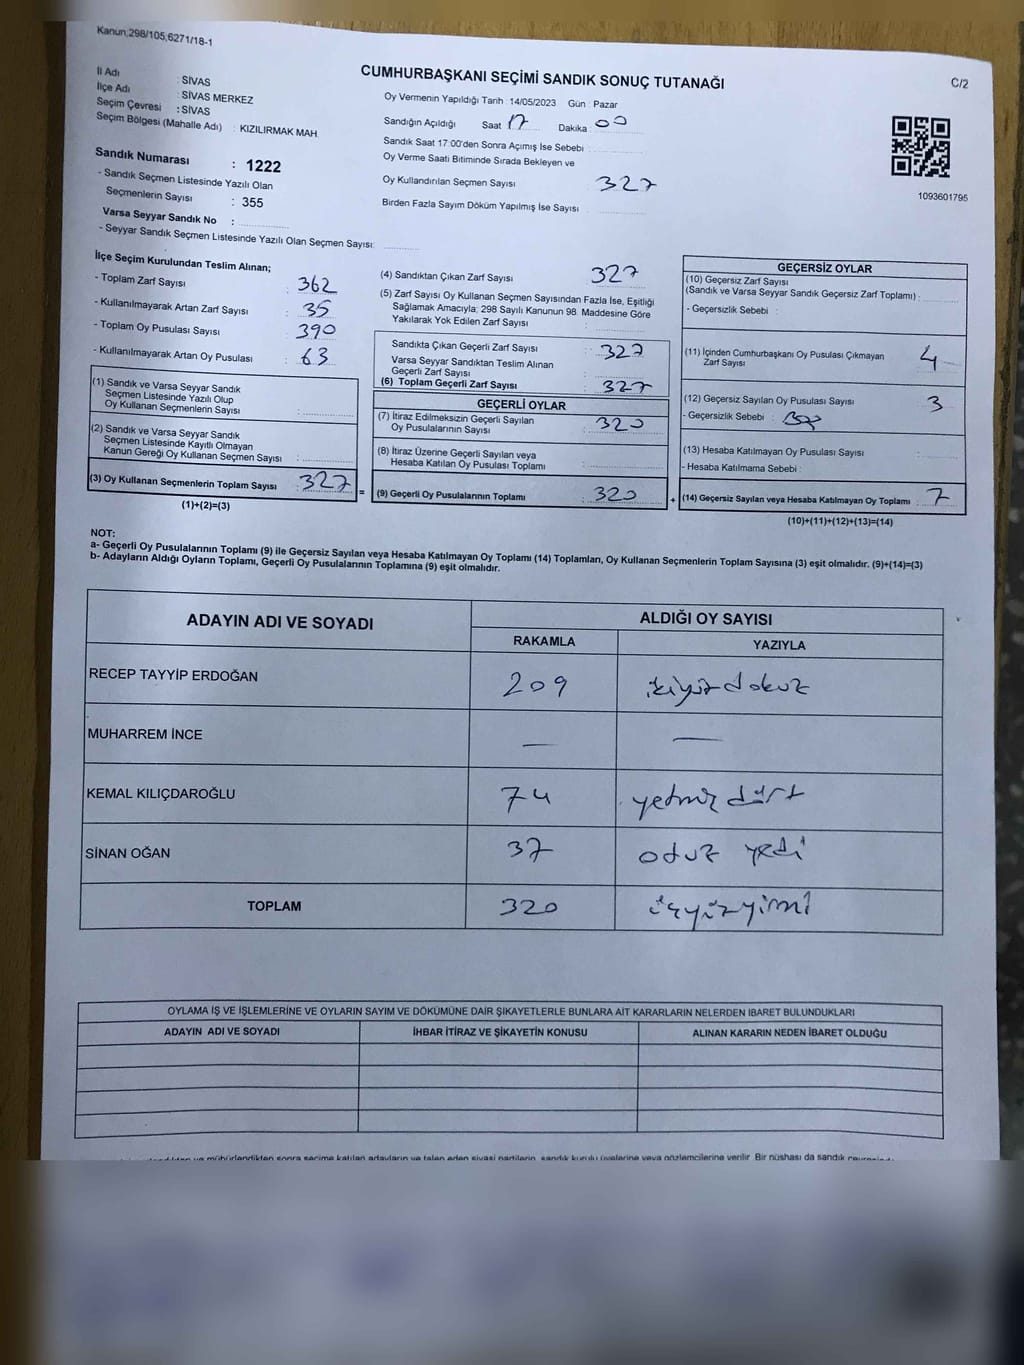 Kanun;298/105,6271/18-1
CUMHURBAŞKANI SEÇİMİ SANDIK SONUÇ TUTANAĞI
C/2
İl Adı : SİVAS
İlçe Adı : SİVAS MERKEZ
Seçim Çevresi : SİVAS
Seçim Bölgesi (Mahalle Adı) : KIZILIRMAK MAH.
Oy Vermenin Yapıldığı Tarih : 14/05/2023 Gün : Pazar
Sandığın Açıldığı Saat 17 Dakika 00
Sandık Saat 17:00'den Sonra Açımış İse Sebebi :
Oy Verme Saati Bitiminde Sırada Bekleyen ve
Oy Kullandırılan Seçmen Sayısı 327
Birden Fazla Sayım Döküm Yapılmış İse Sayısı
1093601795
Sandık Numarası : 1222
- Sandık Seçmen Listesinde Yazılı Olan
Seçmenlerin Sayısı : 355
Varsa Seyyar Sandık No :
- Seyyar Sandık Seçmen Listesinde Yazılı Olan Seçmen Sayısı:
İlçe Seçim Kurulundan Teslim Alınan;
- Toplam Zarf Sayısı : 362
- Kullanılmayarak Artan Zarf Sayısı : 35
- Toplam Oy Pusulası Sayısı : 390
- Kullanılmayarak Artan Oy Pusulası : 63
(1) Sandık ve Varsa Seyyar Sandık
Seçmen Listesinde Yazılı Olup
Oy Kullanan Seçmenlerin Sayısı :
(2) Sandık ve Varsa Seyyar Sandık
Seçmen Listesinde Kayıtlı Olmayan
Kanun Gereği Oy Kullanan Seçmen Sayısı :
(3) Oy Kullanan Seçmenlerin Toplam Sayısı : 327
(1)+(2)=(3)
=
(4) Sandıktan Çıkan Zarf Sayısı : 327
(5) Zarf Sayısı Oy Kullanan Seçmen Sayısından Fazla İse, Eşitliği
Sağlamak Amacıyla; 298 Sayılı Kanunun 98. Maddesine Göre
Yakılarak Yok Edilen Zarf Sayısı :
Sandıkta Çıkan Geçerli Zarf Sayısı : 327
Varsa Seyyar Sandıktan Teslim Alınan
Geçerli Zarf Sayısı :
(6) Toplam Geçerli Zarf Sayısı : 327
GEÇERLİ OYLAR
(7) İtiraz Edilmeksizin Geçerli Sayılan
Oy Pusulalarının Sayısı : 320
(8) İtiraz Üzerine Geçerli Sayılan veya
Hesaba Katılan Oy Pusulası Toplamı :
(9) Geçerli Oy Pusulalarının Toplamı : 320
+
GEÇERSİZ OYLAR
(10) Geçersiz Zarf Sayısı
(Sandık ve Varsa Seyyar Sandık Geçersiz Zarf Toplamı) :
- Geçersizlik Sebebi :
(11) İçinden Cumhurbaşkanı Oy Pusulası Çıkmayan
Zarf Sayısı : 4
(12) Geçersiz Sayılan Oy Pusulası Sayısı : 3
- Geçersizlik Sebebi :
(13) Hesaba Katılmayan Oy Pusulası Sayısı :
- Hesaba Katılmama Sebebi :
(14) Geçersiz Sayılan veya Hesaba Katılmayan Oy Toplamı : 7
(10)+(11)+(12)+(13)=(14)
NOT:
a- Geçerli Oy Pusulalarının Toplamı (9) ile Geçersiz Sayılan veya Hesaba Katılmayan Oy Toplamı (14) Toplamları, Oy Kullanan Seçmenlerin Toplam Sayısına (3) eşit olmalıdır. (9)+(14)=(3)
b- Adayların Aldığı Oyların Toplamı, Geçerli Oy Pusulalarının Toplamına (9) eşit olmalıdır.
ADAYIN ADI VE SOYADI
ALDIĞI OY SAYISI
RAKAMLA YAZIYLA
RECEP TAYYİP ERDOĞAN 209 ikiyüzdokuz
MUHARREM İNCE — —
KEMAL KILIÇDAROĞLU 74 yetmiş dört
SİNAN OĞAN 37 otuz yedi
TOPLAM 320 üçyüzyirmi
OYLAMA İŞ VE İŞLEMLERİNE VE OYLARIN SAYIM VE DÖKÜMÜNE DAİR ŞİKAYETLERLE BUNLARA AİT KARARLARIN NELERDEN İBARET BULUNDUKLARI
ADAYIN ADI VE SOYADI İHBAR İTİRAZ VE ŞİKAYETİN KONUSU ALINAN KARARIN NEDEN İBARET OLDUĞU
ve mühürlendikten sonra seçime katılan adayların ve talep eden siyasi partilerin, sandık kurulu üyelerine veya gözlemcilerine verilir. Bir nüshası da sandık